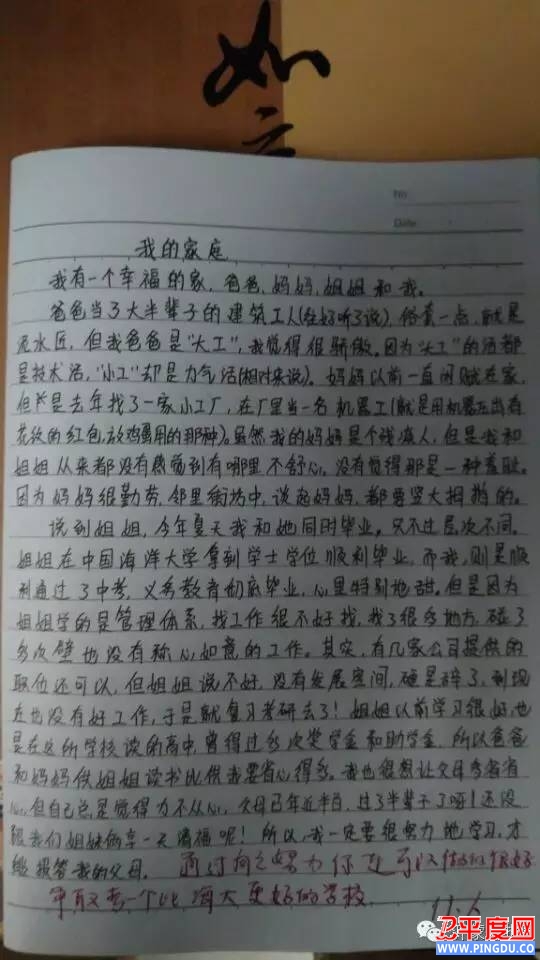 如
No
Date
我的家庭
我有一个幸福的家，爸爸，妈妈，姐姐和我。
爸爸当了大半辈子的建筑工人(在好听了说)，俗套一点，就是
泥水匠，但我爸爸是“大工”，我觉得很骄傲。因为“大工”的活都
是技术活，“小工”却是力气活(相对来说)。妈妈以前一直闲赋在家，
但是去年找了一家小工厂，在厂里当一名机器工(就是用机器压出有
花纹的红包，放鸡蛋用的那种)。虽然我的妈妈是个残疾人，但是我和
姐姐从来都没有感觉到有哪里不舒心，没有觉得那是一种羞耻。
因为妈妈很勤劳，邻里街坊中，谈起妈妈，都要竖大拇指的。
说到姐姐，今年夏天我和她同时毕业。只不过层次不同。
姐姐在中国海洋大学拿到学士学位顺利毕业，而我，则是顺
利通过了中考，义务教育彻底毕业，心里特别地甜。但是因为
姐姐学的是管理体系，找工作很不好找，找了很多地方，碰了
多次壁也没有称心如意的工作。其实，有几家公司提供的
职位还可以，但姐姐说不好，没有发展空间，硬是辞了，到现
在也没有好工作，于是就复习考研去了！姐姐以前学习很好，也
是在这所学校读的高中，曾得过多次奖学金和助学金，所以爸爸
和妈妈供姐姐读书比供我要省心得多。我也很想让父母多省省
心，但自己总是觉得力不从心，父母已年近半百，过了半辈子了呀！还没
跟我们姐妹俩享一天清福呢！所以，我一定要很努力地学习，才
能报答我的父母。通过自己努力你更可以做的很好
争取考一个比海大更好的学校
11.6
平度网
WWW.PINGDU.CO